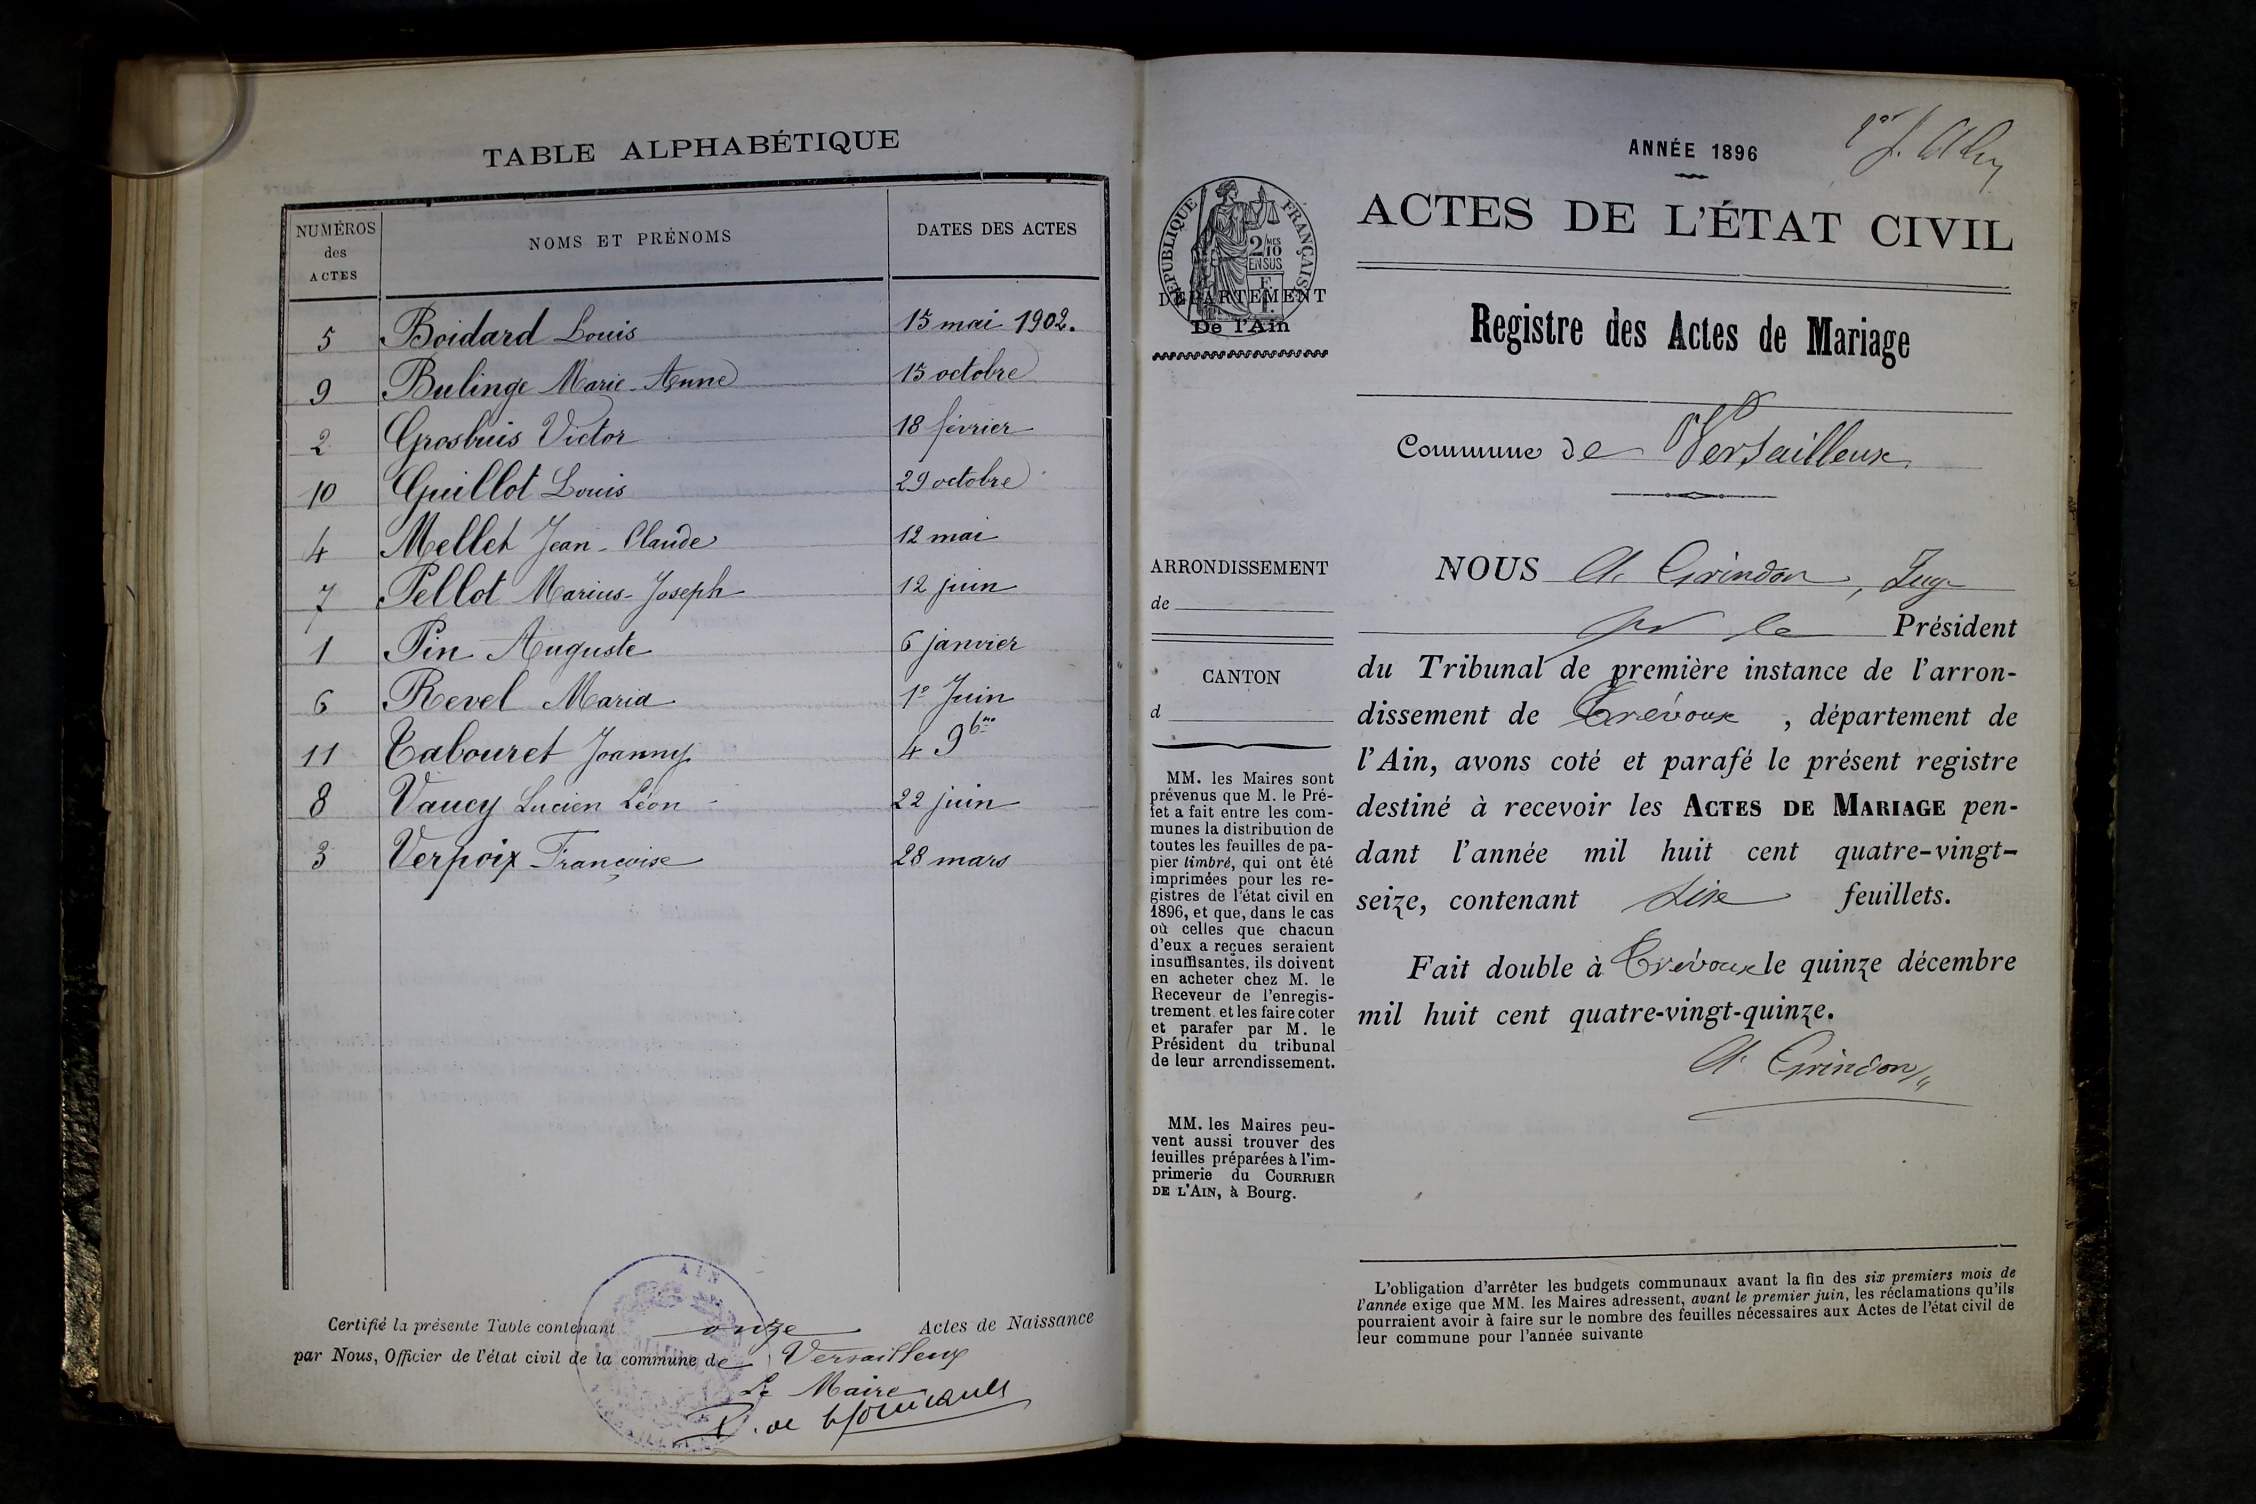 TABLE ALPHABÉTIQUE
NUMÉROS des ACTES NOMS ET PRÉNOMS DATES DES ACTES
5 Boidard Louis 15 mai 1902.
9 Bulinge Marie-Anne 15 octobre
2 Grosbuis Victor 18 février
10 Guillot Louis 29 octobre
4 Mellet Jean-Claude 12 mai
7 Pellot Marius-Joseph 12 juin
1 Pin Auguste 6 janvier
6 Revel Maria 1º Juin
11 Tabouret Joanny 4 9bre
8 Vaucy Lucien Léon 22 juin
3 Verpoix Françoise 28 mars
Certifié la présente Table contenant onze Actes de Naissance
par Nous, Officier de l'état civil de la commune de Versailleux
Le Maire
AIN
ANNÉE 1896
ACTES DE L'ÉTAT CIVIL
RÉPUBLIQUE FRANÇAISE
2/10 MES
EN SUS
DÉPARTEMENT
De l'Ain
Registre des Actes de Mariage
Commune de Versailleux
ARRONDISSEMENT
de
CANTON
d
MM. les Maires sont
prévenus que M. le Pré-
fet a fait entre les com-
munes la distribution de
toutes les feuilles de pa-
pier timbré, qui ont été
imprimées pour les re-
gistres de l'état civil en
1896, et que, dans le cas
où celles que chacun
d'eux a reçues seraient
insuffisantes, ils doivent
en acheter chez M. le
Receveur de l'enregis-
trement et les faire coter
et parafer par M. le
Président du tribunal
de leur arrondissement.
MM. les Maires peu-
vent aussi trouver des
feuilles préparées à l'im-
primerie du COURRIER
DE L'AIN, à Bourg.
NOUS A. Grindon, Juge
pr le Président
du Tribunal de première instance de l'arron-
dissement de Trévoux, département de
l'Ain, avons coté et parafé le présent registre
destiné à recevoir les ACTES DE MARIAGE pen-
dant l'année mil huit cent quatre-vingt-
seize, contenant dix feuillets.
Fait double à Trévoux le quinze décembre
mil huit cent quatre-vingt-quinze.
A. Grindon
L'obligation d'arrêter les budgets communaux avant la fin des six premiers mois de
l'année exige que MM. les Maires adressent, avant le premier juin, les réclamations qu'ils
pourraient avoir à faire sur le nombre des feuilles nécessaires aux Actes de l'état civil de
leur commune pour l'année suivante